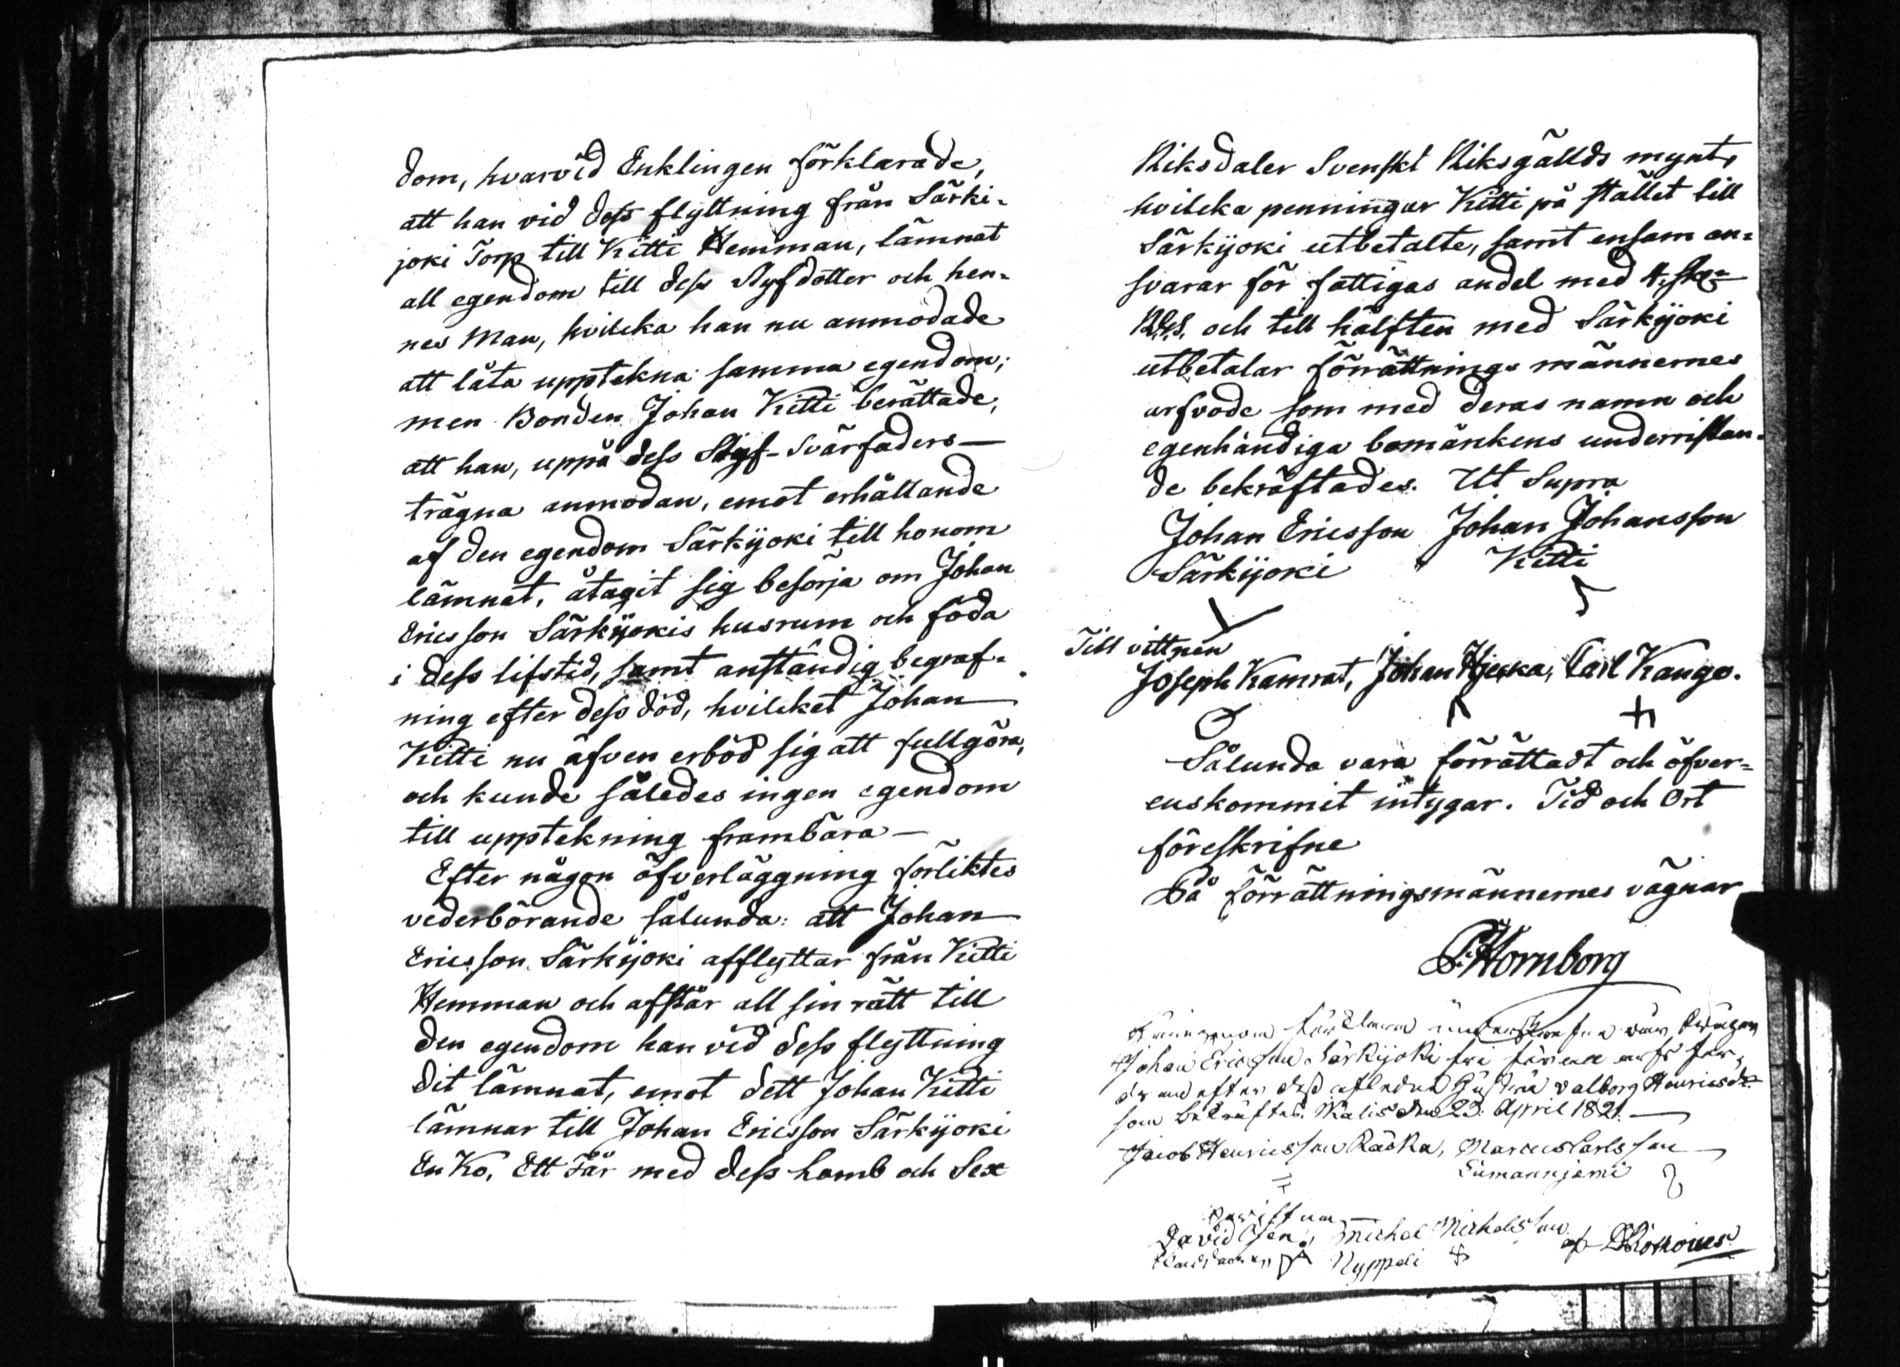 dom, hvarvid Enklingen förklarade,
att han vid dess flyttning från Särki-
joki Torp till Kitti Hemman, lämnat
all egendom till dess Styfdotter och hen-
nes Man, hvilcka han nu anmodade
att låta upptekna samma egendom;
men Bonden Johan Kitti berättade,
att han, uppå dess Styf-Svärfaders
trägna anmodan, emot erhållande
af den egendom Särkijoki till honom
lämnat, åtagit sig besörja om Johan
Ericsson Särkijokis husrum och föda
i dess lifstid, samt anständig begraf-
ning efter dess död, hvilcket Johan
Kitti nu äfven erböd sig att fullgöra,
och kunde således ingen egendom
till upptekning frambära —
Efter någon öfverläggning förliktes
vederbörande sålunda: att Johan
Ericsson Särkijoki afflyttar från Kitti
Hemman och afstår all sin rätt till
den egendom han vid dess flyttning
dit lämnat, emot dett Johan Kitti
lämnar till Johan Ericsson Särkijoki
En Ko, Ett Får med dess lamb och Sex
Riksdaler Svenskt Riksgälds mynt,
hvilcka penningar Kitti på stället till
Särkijoki utbetalte, samt ensam an-
svarar för fattigas andel med 4 sk
RGS. och till hälften med Särkijoki
utbetalar förrättnings männernes
arfvode som med deras namn och
egenhändiga bomärckens underristan-
de bekräftades. Ut Supra
Johan Ericsson Johan Johansson
Särkijoki Kitti
Till vittnen
Joseph Kamrat, Johan Carl Kango.
Sålunda vara förrättadt och öfver-
enskommit intygar. Tid och Ort
föreskrifne
På förrättningsmännernes vägnar
P. Hornborg
förklara våg
Johan Ericsson Särkijoki fri
efter dess afledna Hustru Valborg Henricsdr
som bekräftas. den 23 April 1821.
Jacob Henricsson Räckä, Marcus Carlsson
David Michel Michelsson
Nyppeli